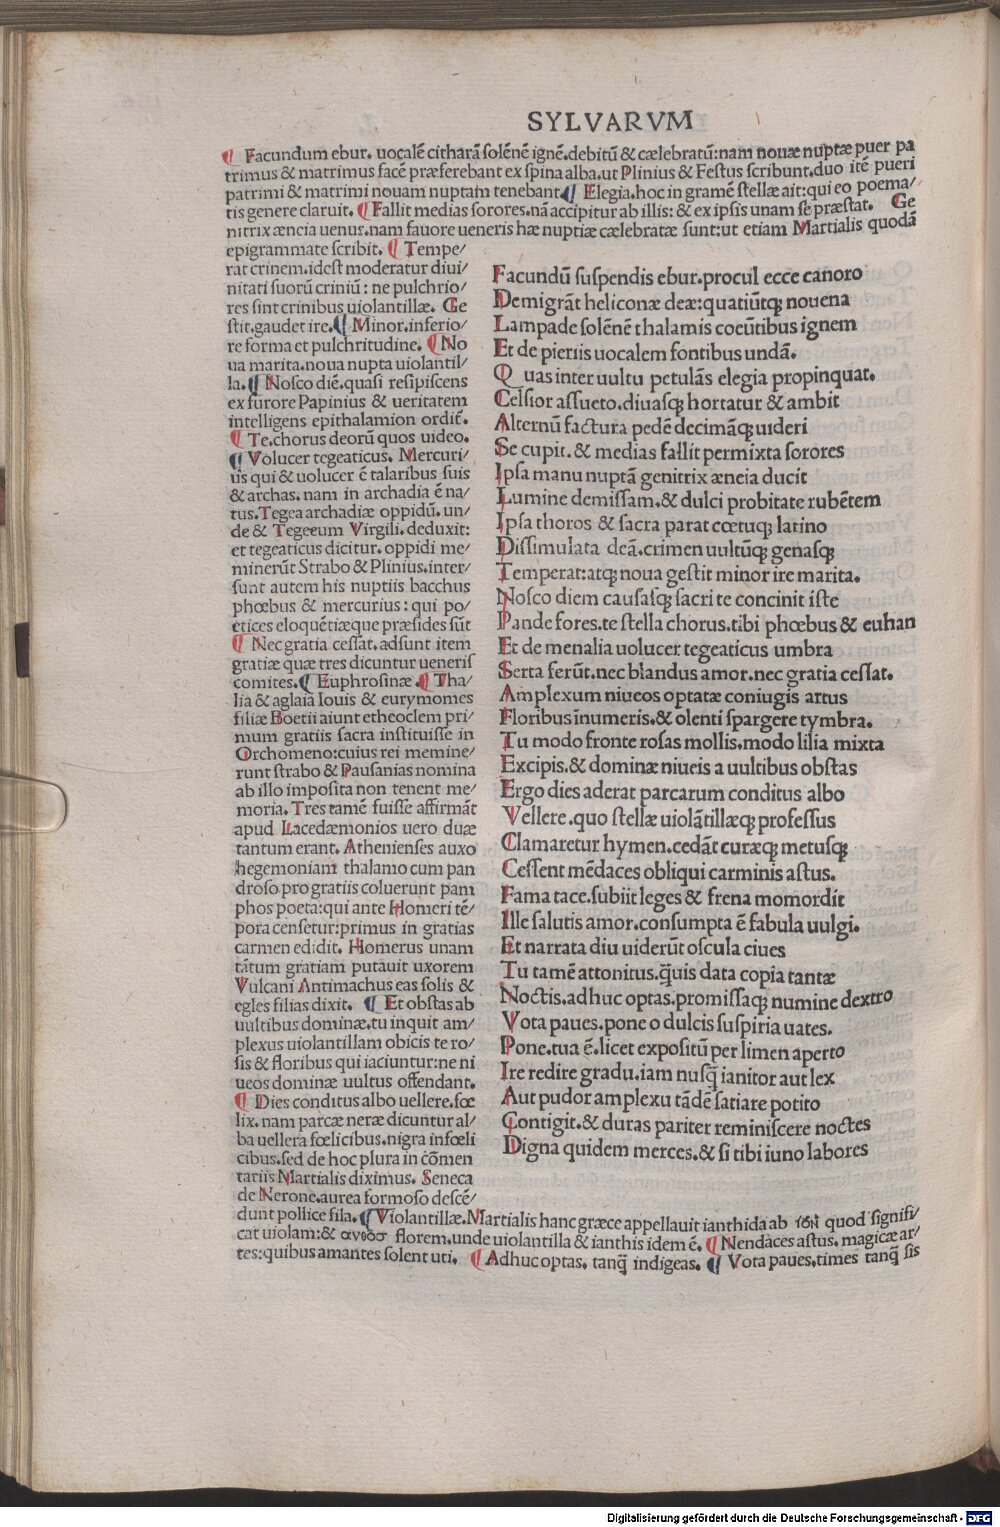 SYLVARVM
¶ Facundum ebur. uocalē citharā solēnē ignē.debitū & cælebratū:nam nouæ nuptæ puer pa
trimus & matrimus facē præferebant ex spina alba.ut Plinius & Festus scribunt.duo itē pueri
patrimi & matrimi nouam nuptam tenebant ¶ Elegia.hoc in gramē stellæ ait:qui eo poema/
tis genere claruit. ¶ Fallit medias sorores.nā accipitur ab illis: & ex ipsis unam se præstat. Ge
nitrix æneia uenus.nam fauore ueneris hæ nuptiæ cælebratæ sunt:ut etiam Martialis quodā
epigrammate scribit. ¶ Tempe/
rat crinem.idest moderatur diui/
nitati suorū criniū : ne pulchrio/
res sint crinibus uiolantillæ. Ge
stit.gaudet ire. ¶ Minor.inferio/
re forma et pulchritudine. ¶ No
ua marita.noua nupta uiolantil/
la. ¶ Nosco diē.quasi resipiscens
ex furore Papinius & ueritatem
intelligens epithalamion ordit̄.
¶ Te.chorus deorū quos uideo.
¶ Volucer tegeaticus. Mercuri/
us qui & uolucer ē talaribus suis
& archas. nam in archadia ē na/
tus.Tegea archadiæ oppidū. un/
de & Tegeeum Virgili. deduxit:
et tegeaticus dicitur. oppidi me/
minerūt Strabo & Plinius.inter/
sunt autem his nuptiis bacchus
phœbus & mercurius : qui po/
etices eloquētiæque præsides sūt
¶ Nec gratia cessat.adsunt item
gratiæ quæ tres dicuntur ueneris
comites. ¶ Euphrosinæ. ¶ Tha/
lia & aglaia Iouis & eurymomes
filiæ Boetii aiunt etheoclem pri/
mum gratiis sacra instituisse in
Orchomeno:cuius rei memine/
runt strabo & Pausanias nomina
ab illo imposita non tenent me/
moria. Tres tamē fuisse affirmāt
apud Lacedæmonios uero duæ
tantum erant. Athenienses auxo
hegemoniam thalamo cum pan
droso pro gratiis coluerunt pam
phos poeta:qui ante Homeri tē/
pora censetur:primus in gratias
carmen edidit. Homerus unam
tātum gratiam putauit uxorem
Vulcani Antimachus eas solis &
egles filias dixit. ¶ Et obstas ab
uultibus dominæ.tu inquit am/
plexus uiolantillam obicis te ro/
sis & floribus qui iaciuntur:ne ni
ueos dominæ uultus offendant.
¶ Dies conditus albo uellere.fœ
lix. nam parcæ neræ dicuntur al/
ba uellera fœlicibus.nigra infœli
cibus.sed de hoc plura in cōmen
tariis Martialis diximus. Seneca
de Nerone.aurea formoso descē/
dunt pollice fila. ¶ Violantillæ.Martialis hanc græce appellauit ianthida ab quod signifi/
cat uiolam:& florem.unde uiolantilla & ianthis idem ē. ¶ Mendaces astus. magicæ ar/
tes:quibus amantes solent uti. ¶ Adhuc optas. tanq̄ indigeas. ¶ Vota paues.times tanq̄ sis
Facundū suspendis ebur.procul ecce canoro
Demigrāt heliconæ deæ:quatiūtq; nouena
Lampade solēnē thalamis coeūtibus ignem
Et de pieriis uocalem fontibus undā.
Quas inter uultu petulās elegia propinquat.
Celsior assueto.diuasq; hortatur & ambit
Alternū factura pedē decimāq; uideri
Se cupit. & medias fallit permixta sorores
Ipsa manu nuptā genitrix æneia ducit
Lumine demissam.& dulci probitate rubētem
Ipsa thoros & sacra parat cœtuq; latino
Dissimulata deā.crimen uultūq; genasq;
Temperat:atq; noua gestit minor ire marita.
Nosco diem causasq; sacri te concinit iste
Pande fores.te stella chorus.tibi phœbus & euhan
Et de menalia uolucer tegeaticus umbra
Serta ferūt.nec blandus amor.nec gratia cessat.
Amplexum niueos optatæ coniugis artus
Floribus inumeris.& olenti spargere tymbra.
Tu modo fronte rosas mollis.modo lilia mixta
Excipis.& dominæ niueis a uultibus obstas
Ergo dies aderat parcarum conditus albo
Vellere.quo stellæ uiolātillæq; professus
Clamaretur hymen.cedāt curæq; metusq;
Cessent mēdaces obliqui carminis astus.
Fama tace.subiit leges & frena momordit
Ille salutis amor.consumpta ē fabula uulgi.
Et narrata diu uiderūt oscula ciues
Tu tamē attonitus.q̄uis data copia tantæ
Noctis.adhuc optas.promissaq; numine dextro
Vota paues.pone o dulcis suspiria uates.
Pone.tua ē.licet expositū per limen aperto
Ire redire gradu.iam nusq̄ ianitor aut lex
Aut pudor amplexu tādē satiare potito
Contigit.& duras pariter reminiscere noctes
Digna quidem merces.& si tibi iuno labores
Digitalisierung gefördert durch die Deutsche Forschungsgemeinschaft - DFG